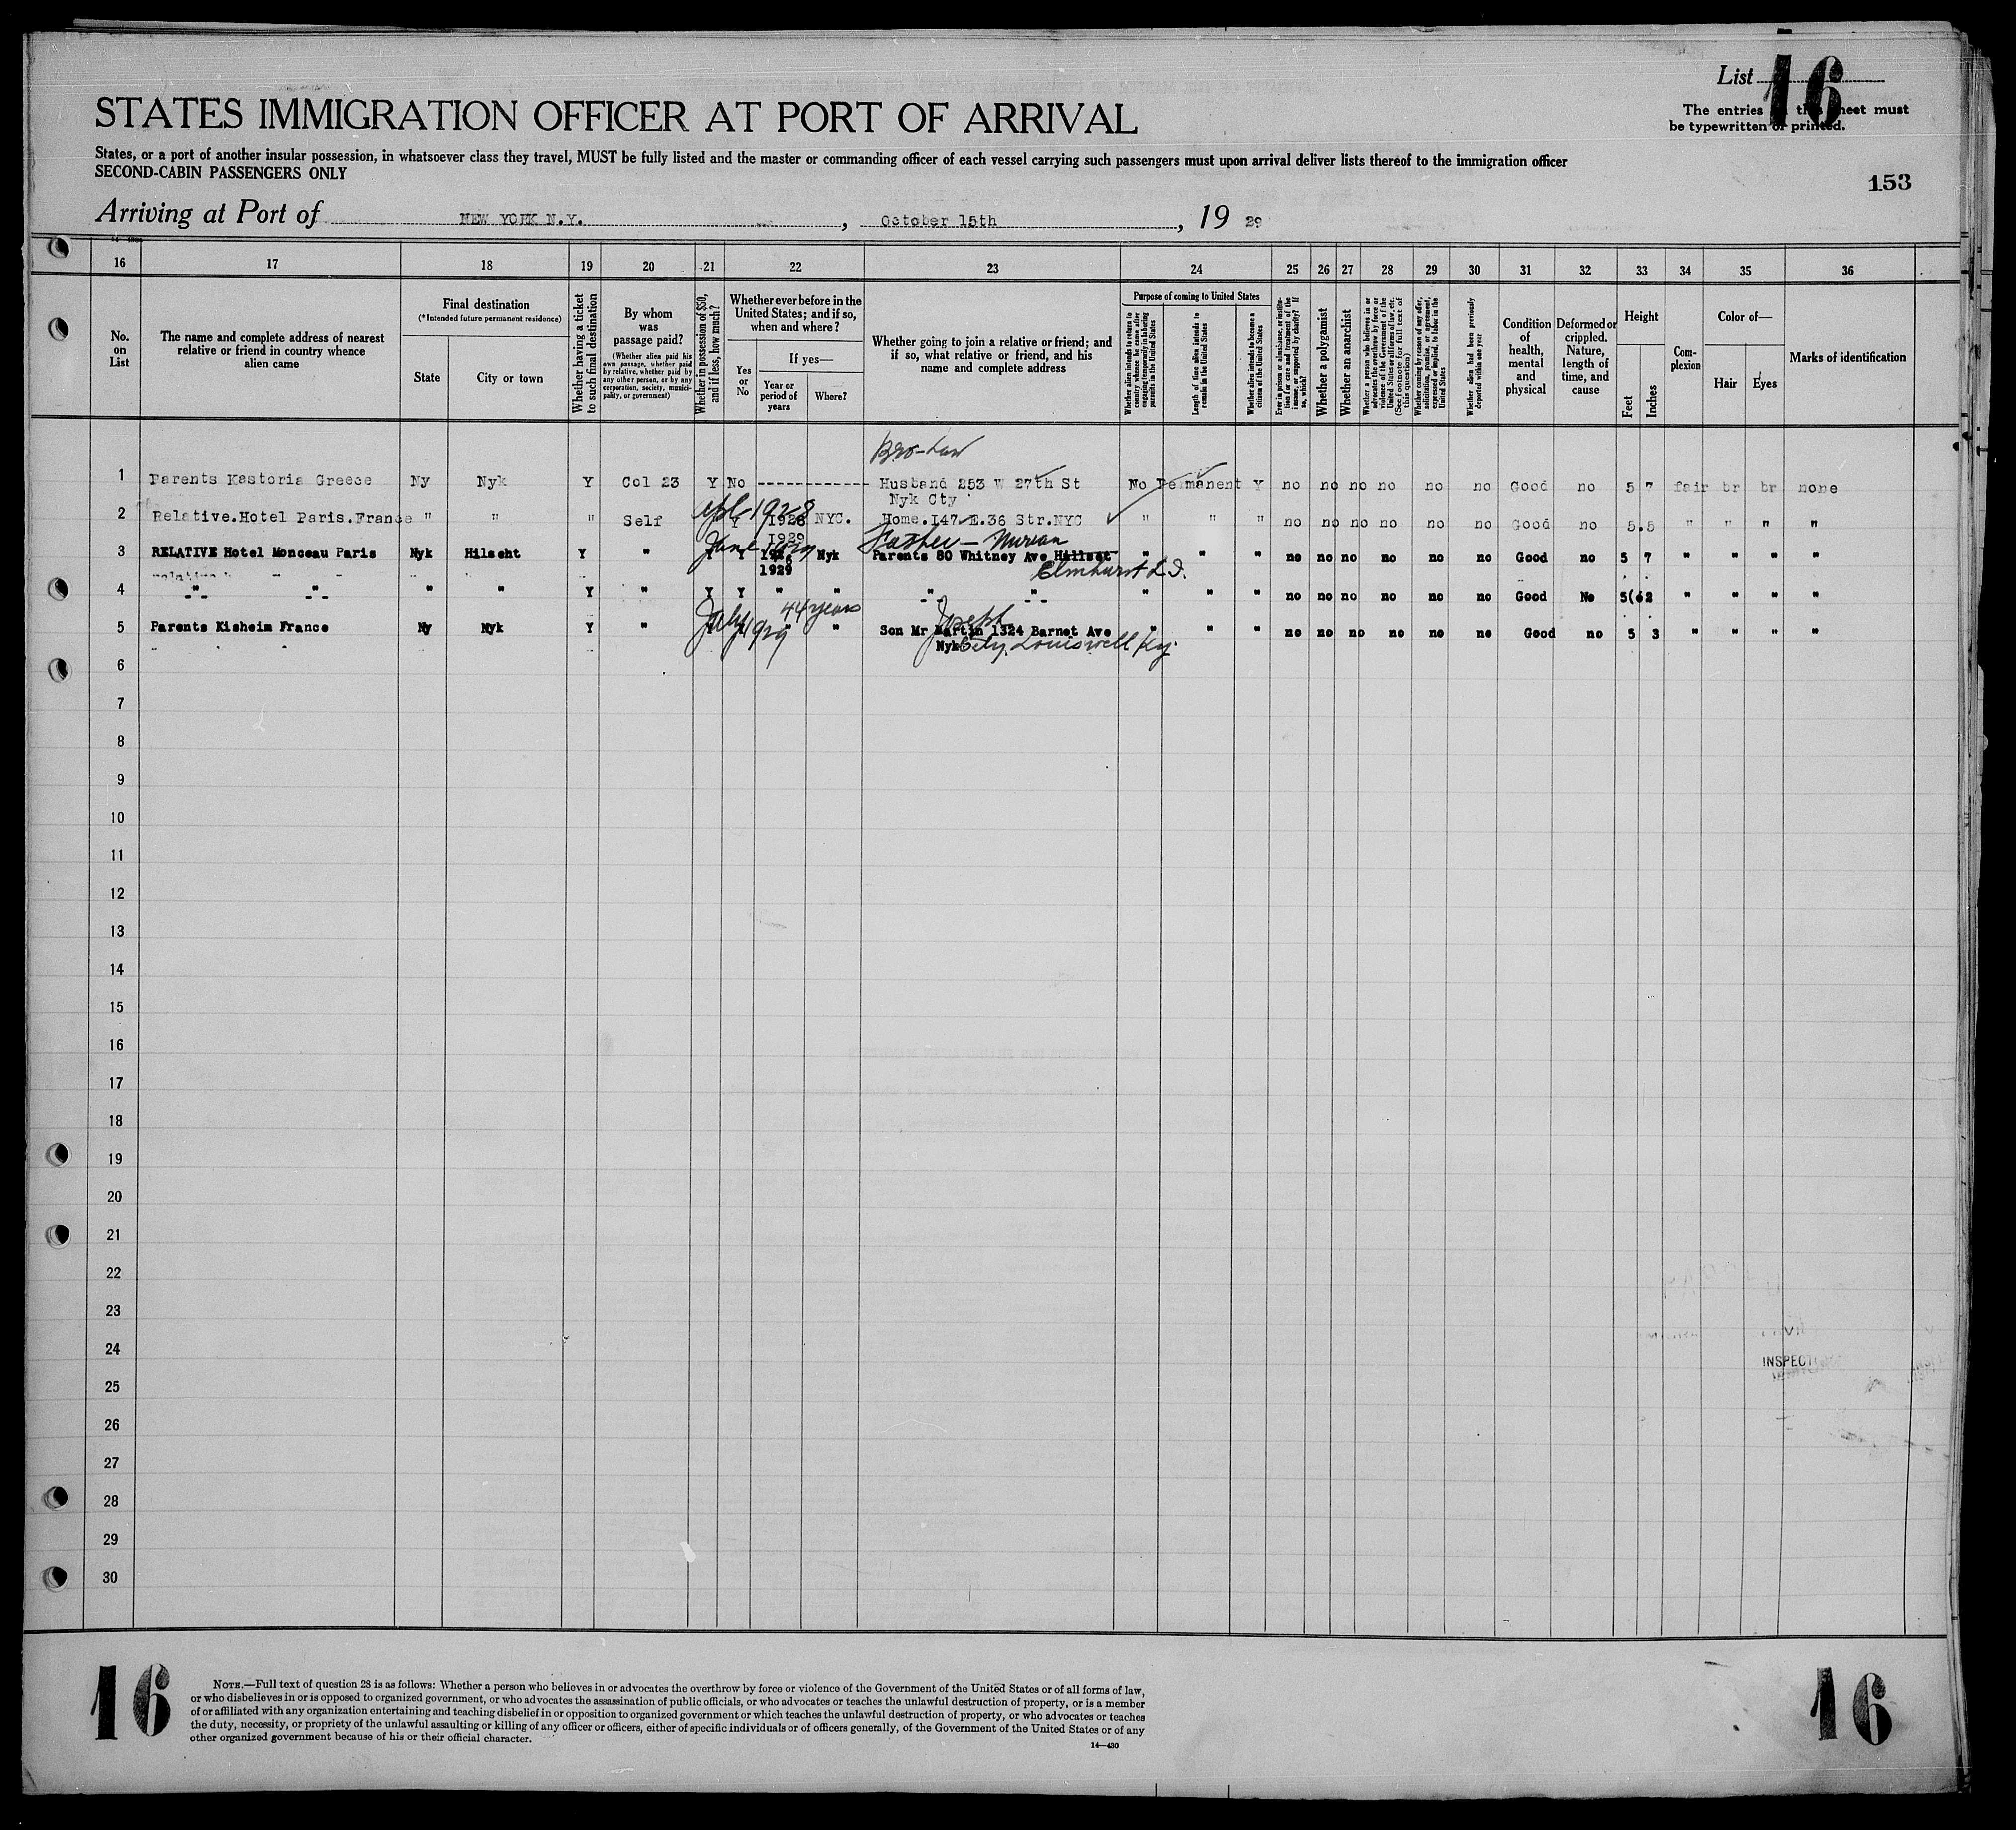 List 16
The entries on this sheet must
be typewritten or printed.
STATES IMMIGRATION OFFICER AT PORT OF ARRIVAL
States, or a port of another insular possession, in whatsoever class they travel, MUST be fully listed and the master or commanding officer of each vessel carrying such passengers must upon arrival deliver lists thereof to the immigration officer
SECOND-CABIN PASSENGERS ONLY
153
Arriving at Port of NEW YORK N.Y. , October 15th , 19 29
16 17 18 19 20 21 22 23 24 25 26 27 28 29 30 31 32 33 34 35 36
No. on List
The name and complete address of nearest relative or friend in country whence alien came
Final destination
(*Intended future permanent residence)
State
City or town
Whether having a ticket to such final destination
By whom was passage paid?
(Whether alien paid his own passage, whether paid by relative, whether paid by any other person, or by any corporation, society, municipality, or government)
Whether in possession of $50, and if less, how much?
Whether ever before in the United States; and if so, when and where?
Yes or No
If yes—
Year or period of years
Where?
Whether going to join a relative or friend; and if so, what relative or friend, and his name and complete address
Purpose of coming to United States
Whether alien intends to return to country whence he came after engaging temporarily in laboring pursuits in the United States
Length of time alien intends to remain in the United States
Whether alien intends to become a citizen of the United States
Ever in prison or almshouse, or institution for care and treatment of the insane, or supported by charity? If so, which?
Whether a polygamist
Whether an anarchist
Whether a person who believes in or advocates the overthrow by force or violence of the Government of the United States or all forms of law, etc. (See footnote for full text of this question)
Whether coming by reason of any offer, solicitation, promise, or agreement, expressed or implied, to labor in the United States
Whether alien had been previously deported within one year
Condition of health, mental and physical
Deformed or crippled. Nature, length of time, and cause
Height
Feet
Inches
Complexion
Color of—
Hair
Eyes
Marks of identification
Bro-Law
1 Parents Kastoria Greece Ny Nyk Y Col 23 Y No ------------ Husband 253 W 27th St No Permanent Y no no no no no no Good no 5 7 fair br br none
Nyk Cty
Apl-1928
2 Relative.Hotel Paris.France " " " Self Y 1928 NYC. Home.I47.E.36 Str.NYC " " " no no no no no no Good no 5.5 " " " "
1929
June 1929 Father - Miriam
3 RELATIVE Hotel Monceau Paris Nyk Hilscht Y " Y Nyk Parents 80 Whitney Ave Hillset " " " no no no no no no Good no 5 7 " " " "
1929 Elmhurst L.I.
4 " " " " Y " Y Y " " " " " " no no no no no no Good No 5 2 " " " "
July 1929 44 years Joseph
5 Parents Kisheim France Ny Nyk Y " " " Son Mr Martin 1324 Barnet Ave " " " no no no no no no Good no 5 3 " " " "
Nyk City. Louiswell Ky.
6
7
8
9
10
11
12
13
14
15
16
17
18
19
20
21
22
23
24
INSPECT
25
26
27
28
29
30
16
NOTE.—Full text of question 28 is as follows: Whether a person who believes in or advocates the overthrow by force or violence of the Government of the United States or of all forms of law,
or who disbelieves in or is opposed to organized government, or who advocates the assassination of public officials, or who advocates or teaches the unlawful destruction of property, or is a member
of or affiliated with any organization entertaining and teaching disbelief in or opposition to organized government or which teaches the unlawful destruction of property, or who advocates or teaches
the duty, necessity, or propriety of the unlawful assaulting or killing of any officer or officers, either of specific individuals or of officers generally, of the Government of the United States or of any
other organized government because of his or their official character.
14—430
16